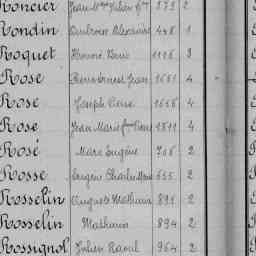 Roncier Jean 873 2
Rondin Ambroise Alexandre 448 1
Roquet Honoré 1116 3
Rose Pierre Ernest Jean 1651 4
Rose Joseph 1656 4
Rose Jean Marie 1811 4
Rosé Marc Eugène 706 2
Rosse Eugène Charles 655 2
Rosselin Auguste Mathurin 891 2
Rosselin Mathurin 894 2
Rossignol Julien Raoul 964 2